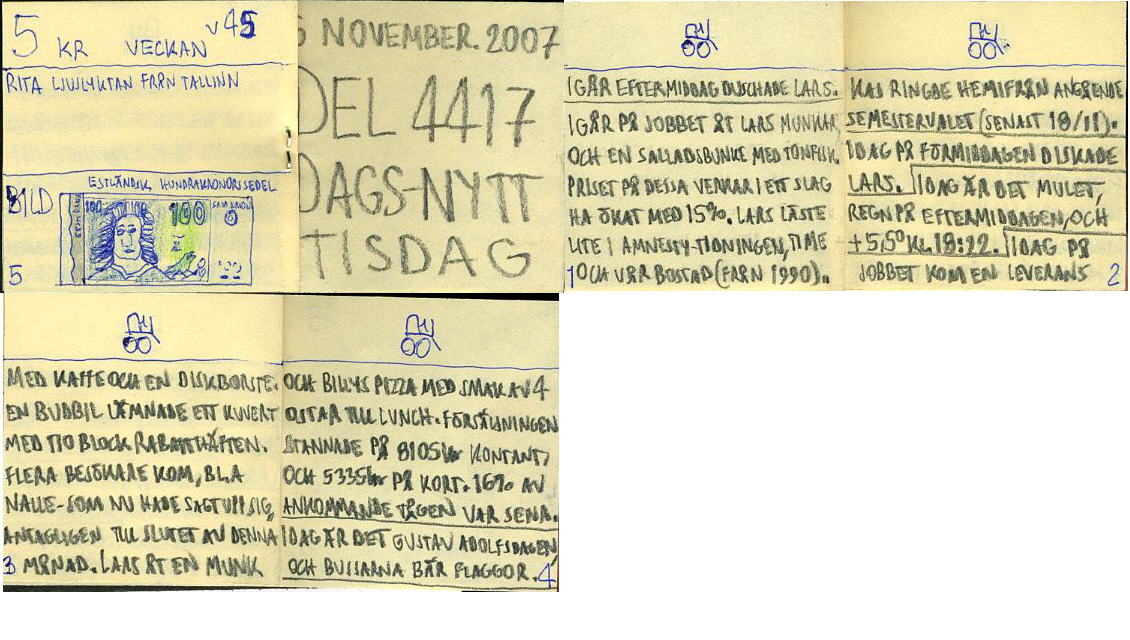 5 KR VECKAN V45
RITA LJUSLYKTAN FRÅN TALLINN
BILD
ESTLÄNDSK HUNDRAKRONORSSEDEL
100 100 100
5
5 NOVEMBER. 2007
DEL 4417
DAGS-NYTT
TISDAG
IGÅR EFTERMIDDAG DUSCHADE LARS.
IGÅR PÅ JOBBET ÅT LARS MUNKAR,
OCH EN SALLADSBUNKE MED TONFISK.
PRISET PÅ DESSA VERKAR I ETT SLAG
HA ÖKAT MED 15%. LARS LÄSTE
LITE I AMNESTY-TIDNINGEN, TIME
OCH VÅR BOSTAD (FRÅN 1990).
1
KAJ RINGDE HEMIFRÅN ANGÅENDE
SEMESTERVALET (SENAST 18/11).
IDAG PÅ FÖRMIDDAGEN DISKADE
LARS. IDAG ÄR DET MULET,
REGN PÅ EFTERMIDDAGEN, OCH
+5,5° KL. 18:22. IDAG PÅ
JOBBET KOM EN LEVERANS
2
MED KAFFE OCH EN DISKBORSTE.
EN BUDBIL LÄMNADE ETT KUVERT
MED TIO BLOCK RABATTHÄFTEN.
FLERA BESÖKARE KOM, BL.A
NALLE-SOM NU HADE SAGT UPP SIG,
ANTAGLIGEN TILL SLUTET AV DENNA
MÅNAD. LARS ÅT EN MUNK
3
OCH BILLYS PIZZA MED SMAK AV 4
OSTAR TILL LUNCH. FÖRSÄLJNINGEN
STANNADE PÅ 8105 kr KONTANT,
OCH 5335 kr PÅ KORT. 16% AV
ANKOMMANDE TÅGEN VAR SENA.
IDAG ÄR DET GUSTAV ADOLFSDAGEN,
OCH BUSSARNA BÄR FLAGGOR.
4